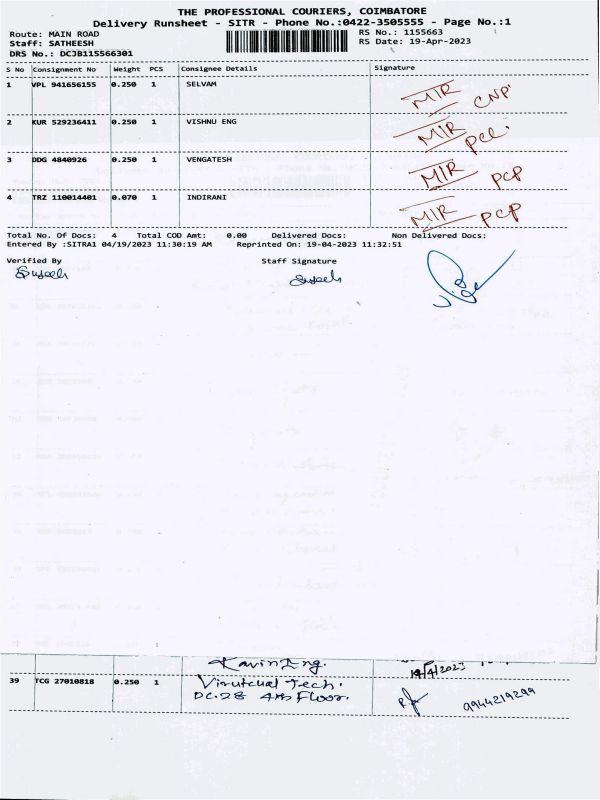 THE PROFESSIONAL COURIERS, COIMBATORE
Delivery Runsheet - SITR - Phone No.:0422-3505555 - Page No.:1
Route: MAIN ROAD RS No.: 1155663
Staff: SATHEESH RS Date: 19-Apr-2023
DRS No.: DCJB115566301
S No Consignment No Weight PCS Consignee Details Signature
1 VPL 941656155 0.250 1 SELVAM MIR CNP
2 KUR 529236411 0.250 1 VISHNU ENG MIR
3 DDG 4840926 0.250 1 VENGATESH MIR PCP
4 TRZ 110014401 0.070 1 INDIRANI MIR PCP
Total No. Of Docs: 4 Total COD Amt: 0.00 Delivered Docs: Non Delivered Docs:
Entered By :SITRA1 04/19/2023 11:30:19 AM Reprinted On: 19-04-2023 11:32:51
Verified By Staff Signature
Kavin Eng. 19/4/2023
39 TCG 27010818 0.250 1 Virutchal Tech.
DC.28 4th Floor. 9944219299